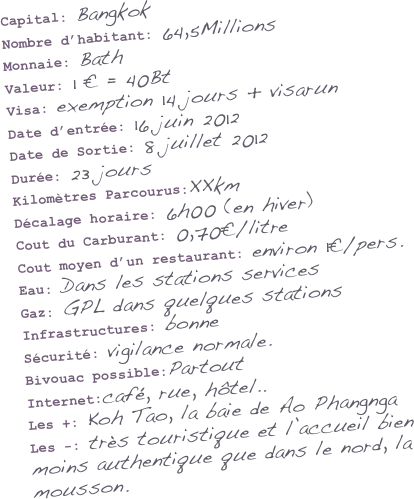 Capital: Bangkok
Nombre d'habitant: 64,5Millions
Monnaie: Bath
Valeur: 1 € = 40Bt
Visa: exemption 14 jours + visarun
Date d'entrée: 16 juin 2012
Date de Sortie: 8 juillet 2012
Durée: 23 jours
Kilomètres Parcourus:XXkm
Décalage horaire: 6h00 (en hiver)
Cout du Carburant: 0,70€/litre
Cout moyen d'un restaurant: environ 1€/pers.
Eau: Dans les stations services
Gaz: GPL dans quelques stations
Infrastructures: bonne
Sécurité: vigilance normale.
Bivouac possible:Partout
Internet:café, rue, hôtel..
Les +: Koh Tao, la baie de Ao Phangnga
Les -: très touristique et l'accueil bien
moins authentique que dans le nord, la
mousson.